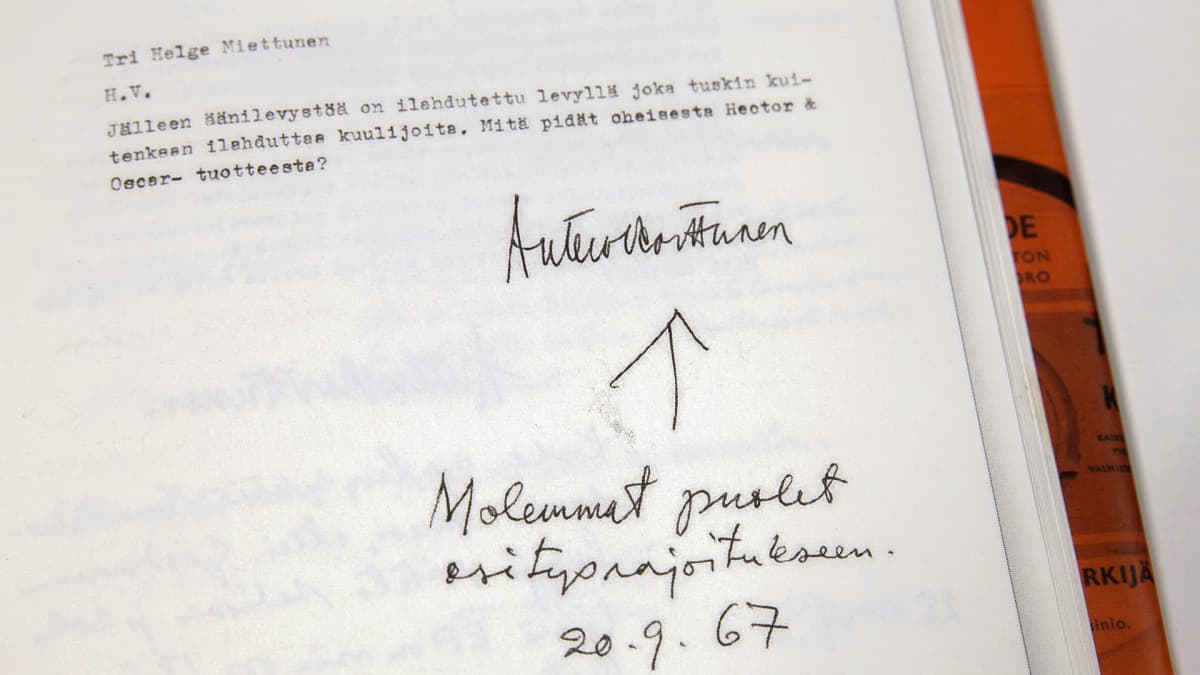 Tri Helge Miettunen
H.V.
Jälleen äänilevystöä on ilahdutettu levyllä joka tuskin kui-
tenkaan ilahduttaa kuulijoita. Mitä pidät oheisesta Hector &
Oscar- tuotteesta?
Antero Karttunen
Molemmat puolet
esitysrajoitukseen.
20.9.67
DE
TON
ORO
T
K
RKIJÄ
inio.